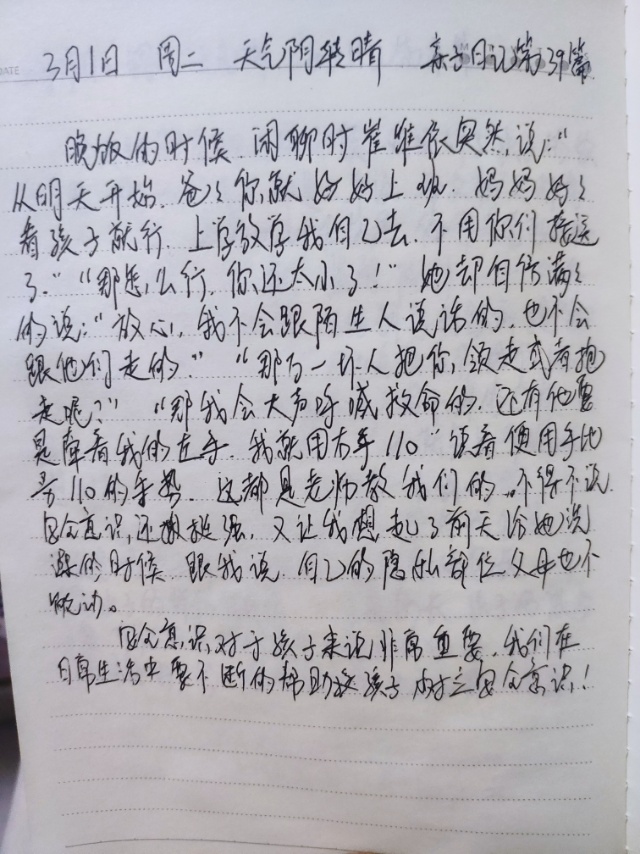 DATE 3月1日 周二 天气阴转晴 亲子日记第39篇
晚饭的时候,闲聊时崔雅依突然说:“
从明天开始,爸爸你就好好上班,妈妈好好
看孩子就行,上学放学我自己去,不用你们接送
了。”“那怎么行,你还太小了!”她却自信满满
的说:“放心,我不会跟陌生人说话的,也不会
跟他们走的。”“那万一坏人把你领走或者抱
走呢?”“那我会大声呼喊救命的,还有他要
是拽着我的左手,我就用右手110”说着便用手比
号110的手势,这都是老师教我们的。不得不说
安全意识还挺强,又让我想起了前天给她洗
澡的时候,跟我说,自己的隐私部位父母也不
能动。
安全意识对于孩子来说非常重要,我们在
日常生活中要不断的帮助孩子树立安全意识!